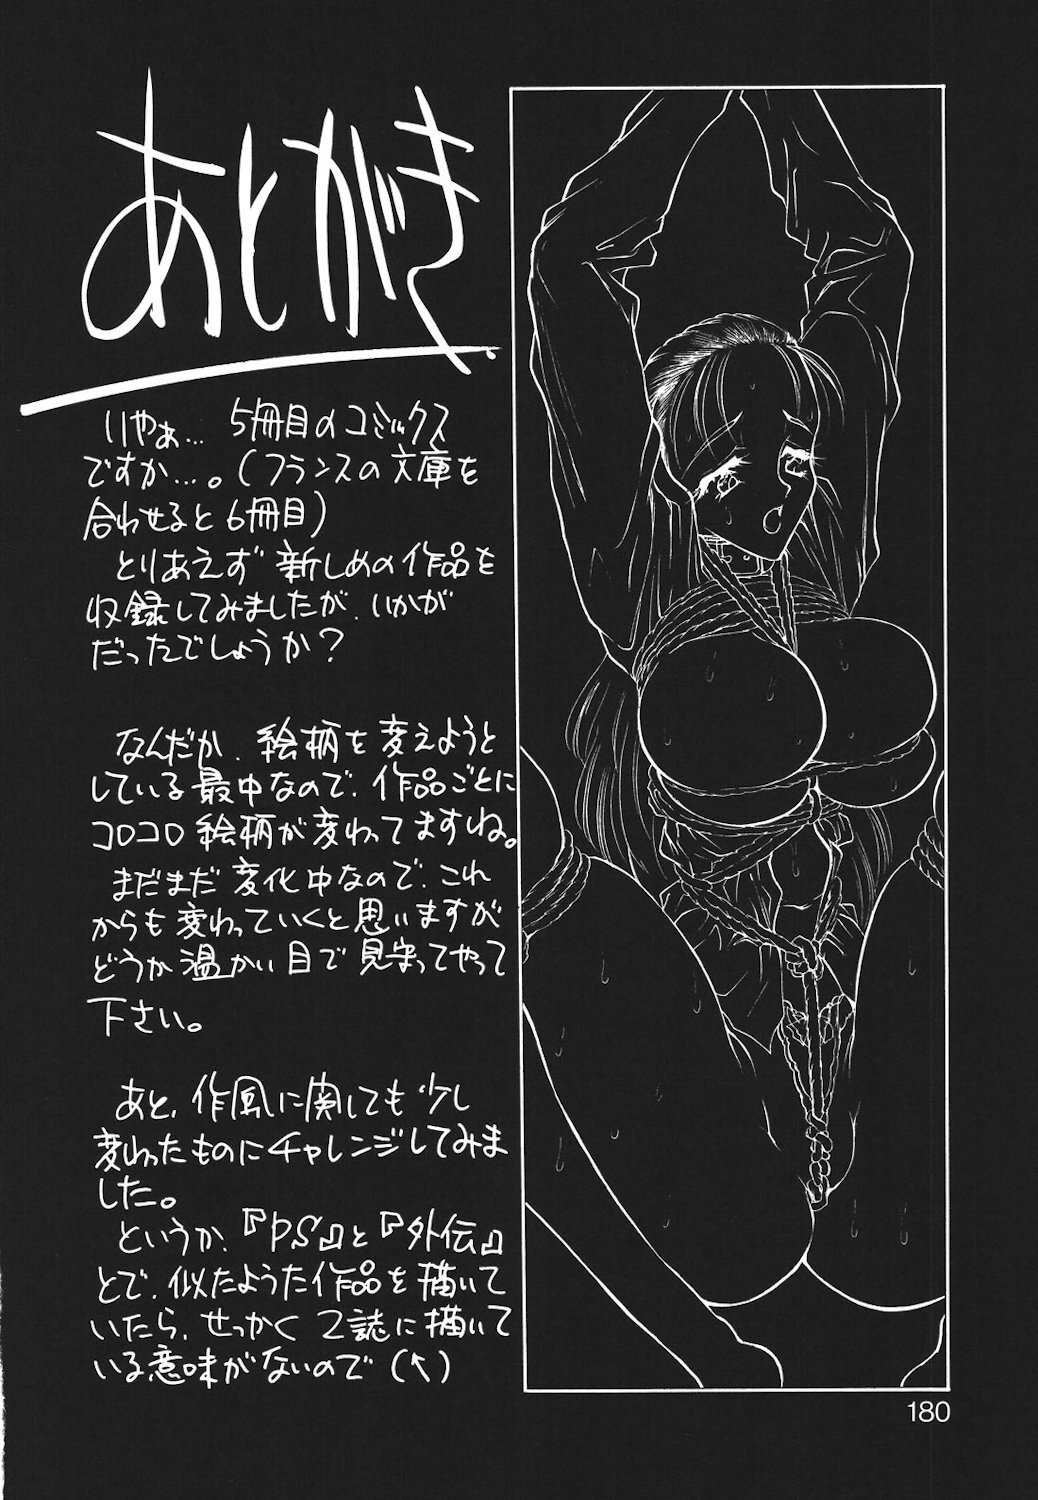 あとがき
いやぁ… 5冊目のコミックス
ですか…。(フランスの文庫を
合わせると6冊目)
とりあえず新しめの作品を
収録してみましたが、いかが
だったでしょうか?
なんだか、絵柄を変えようと
している最中なので、作品ごとに
コロコロ絵柄が変わってますね。
まだまだ変化中なので、これ
からも変わっていくと思いますが
どうか温かい目で見守ってやって
下さい。
あと、作風に関しても少し
変わったものにチャレンジしてみま
した。
というか、『PS』と『外伝』
とで、似たような作品を描いて
いたら、せっかく2誌に描いて
いる意味がないので(↖)
180